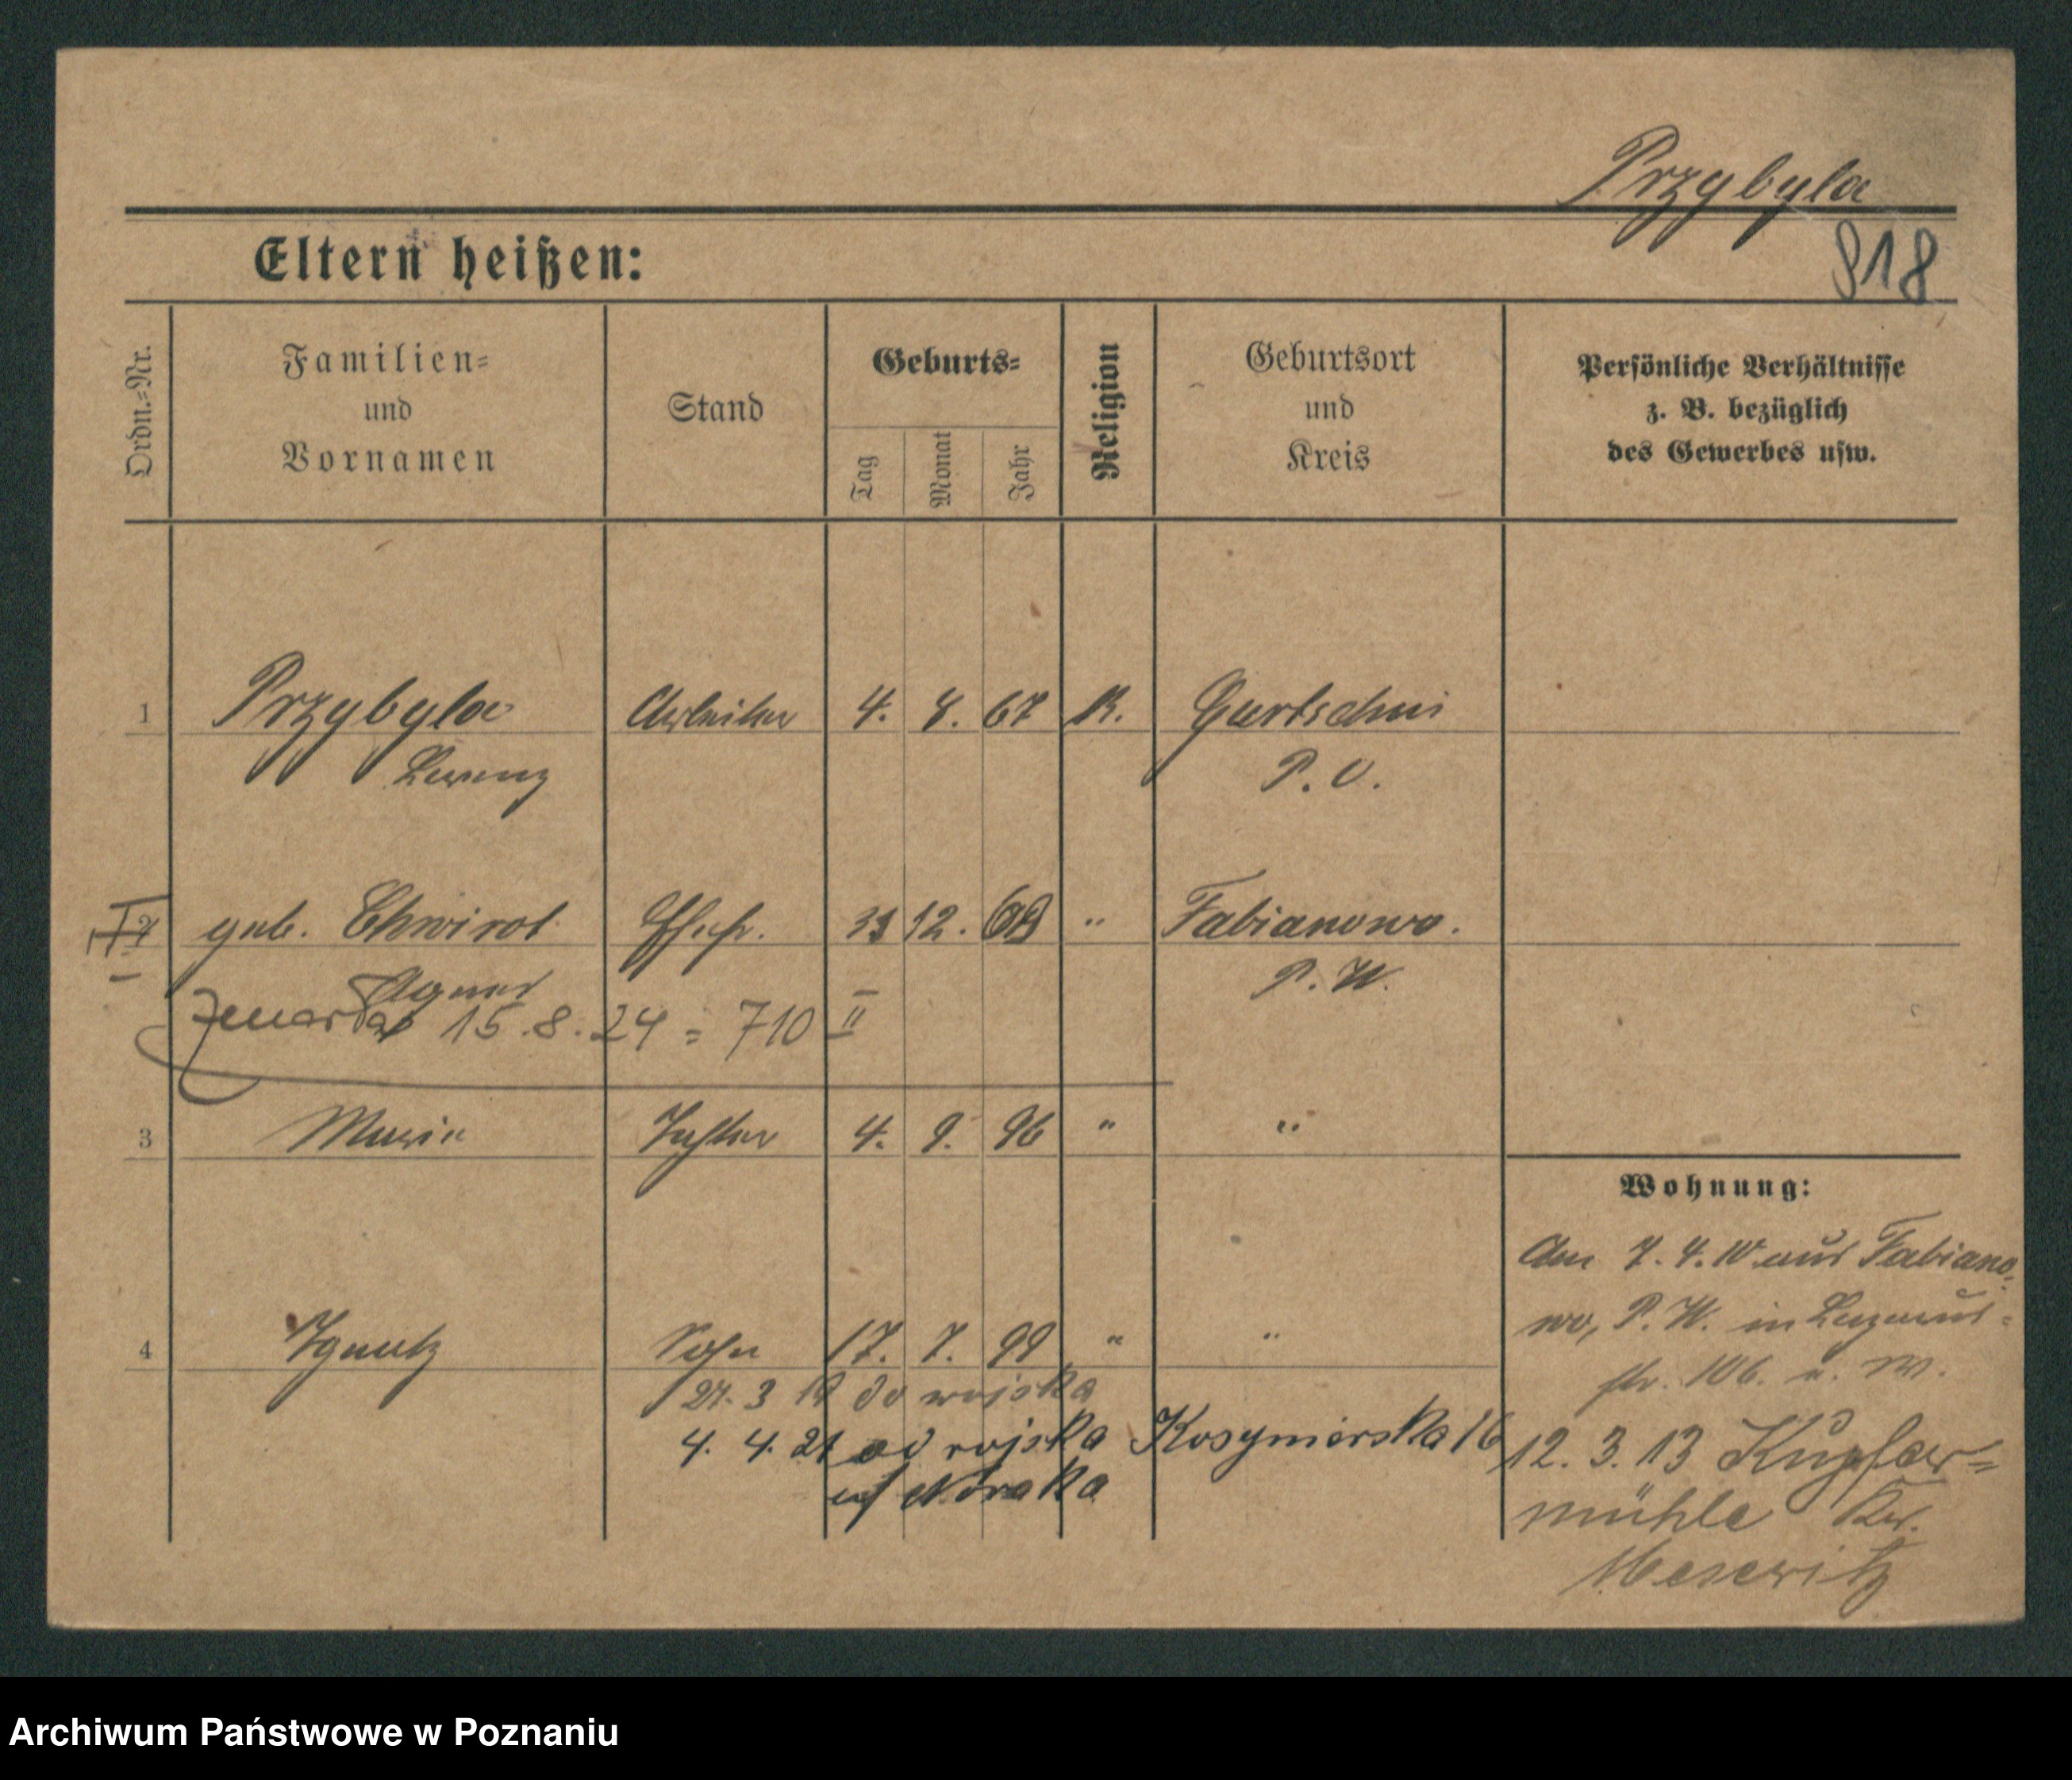 Przybyla
Eltern heißen:
818
Ordn.-Nr.
Familien-
und
Vornamen
Stand
Geburts-
Tag
Monat
Jahr
Religion
Geburtsort
und
Kreis
Persönliche Verhältnisse
z. B. bezüglich
des Gewerbes usw.
1 Przybyla Arbeiter 4. 8. 67 K. Gurtschin
Lorenz P. O.
2 geb. Chwirot Ehefr. 12. " Fabianowo.
Agnes P. W.
15.8.24 = 710 II
3 Maria Tochter 4. 9. 96 " "
Wohnung:
Am 7. 4. 10 aus Fabiano-
wo, P. W. in Lazarus-
str. 106. u. W.
4 Ignatz Sohn 17. 7. 99 " "
27. 3 19 do wojska
4. 4. 21 od wojska 16
12. 3. 13 Kupfer-
mühle Kr.
Meseritz
Archiwum Państwowe w Poznaniu